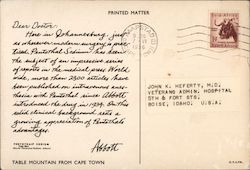 PRINTED MATTER
Dear Doctor:
Here in Johannesburg, just
as wherever modern surgery is prac-
ticed, Pentothal Sodium has been
the subject of an impressive series
of reports in the medical press. World
wide, more than 2500 articles have
been published on intravenous anes-
thesia with Pentothal since Abbott
introduced the drug in 1934. On this
solid clinical background rests a
growing appreciation of Pentothal's
advantages.
Abbott
JOHN K. HEFERTY, M.D.
VETERANS ADMIN. HOSPITAL
5TH & FORT STS,
BOISE, IDAHO, U.S.A.
TABLE MOUNTAIN FROM CAPE TOWN